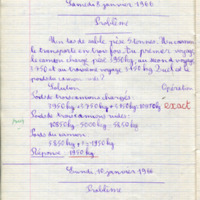 Samedi 8 janvier 1966
Problème
Un tas de sable pèse 5 tonnes. Un camion
le transporte en trois fois. Au premier voyage
le camion chargé pèse 3950 kg, au second voyage
3750 et au troisième voyage 3150 kg. Quel est le
poids du camion vide?
Solution Opération
Poids des trois camions chargés:
exact
Poids des trois camions vides:
10850 kg - 5000 = 5850 kg
Poids du camion:
5850 kg : 3 = 1950 kg
Réponse: 1950 kg
Lundi 10 janvier 1966
Problème